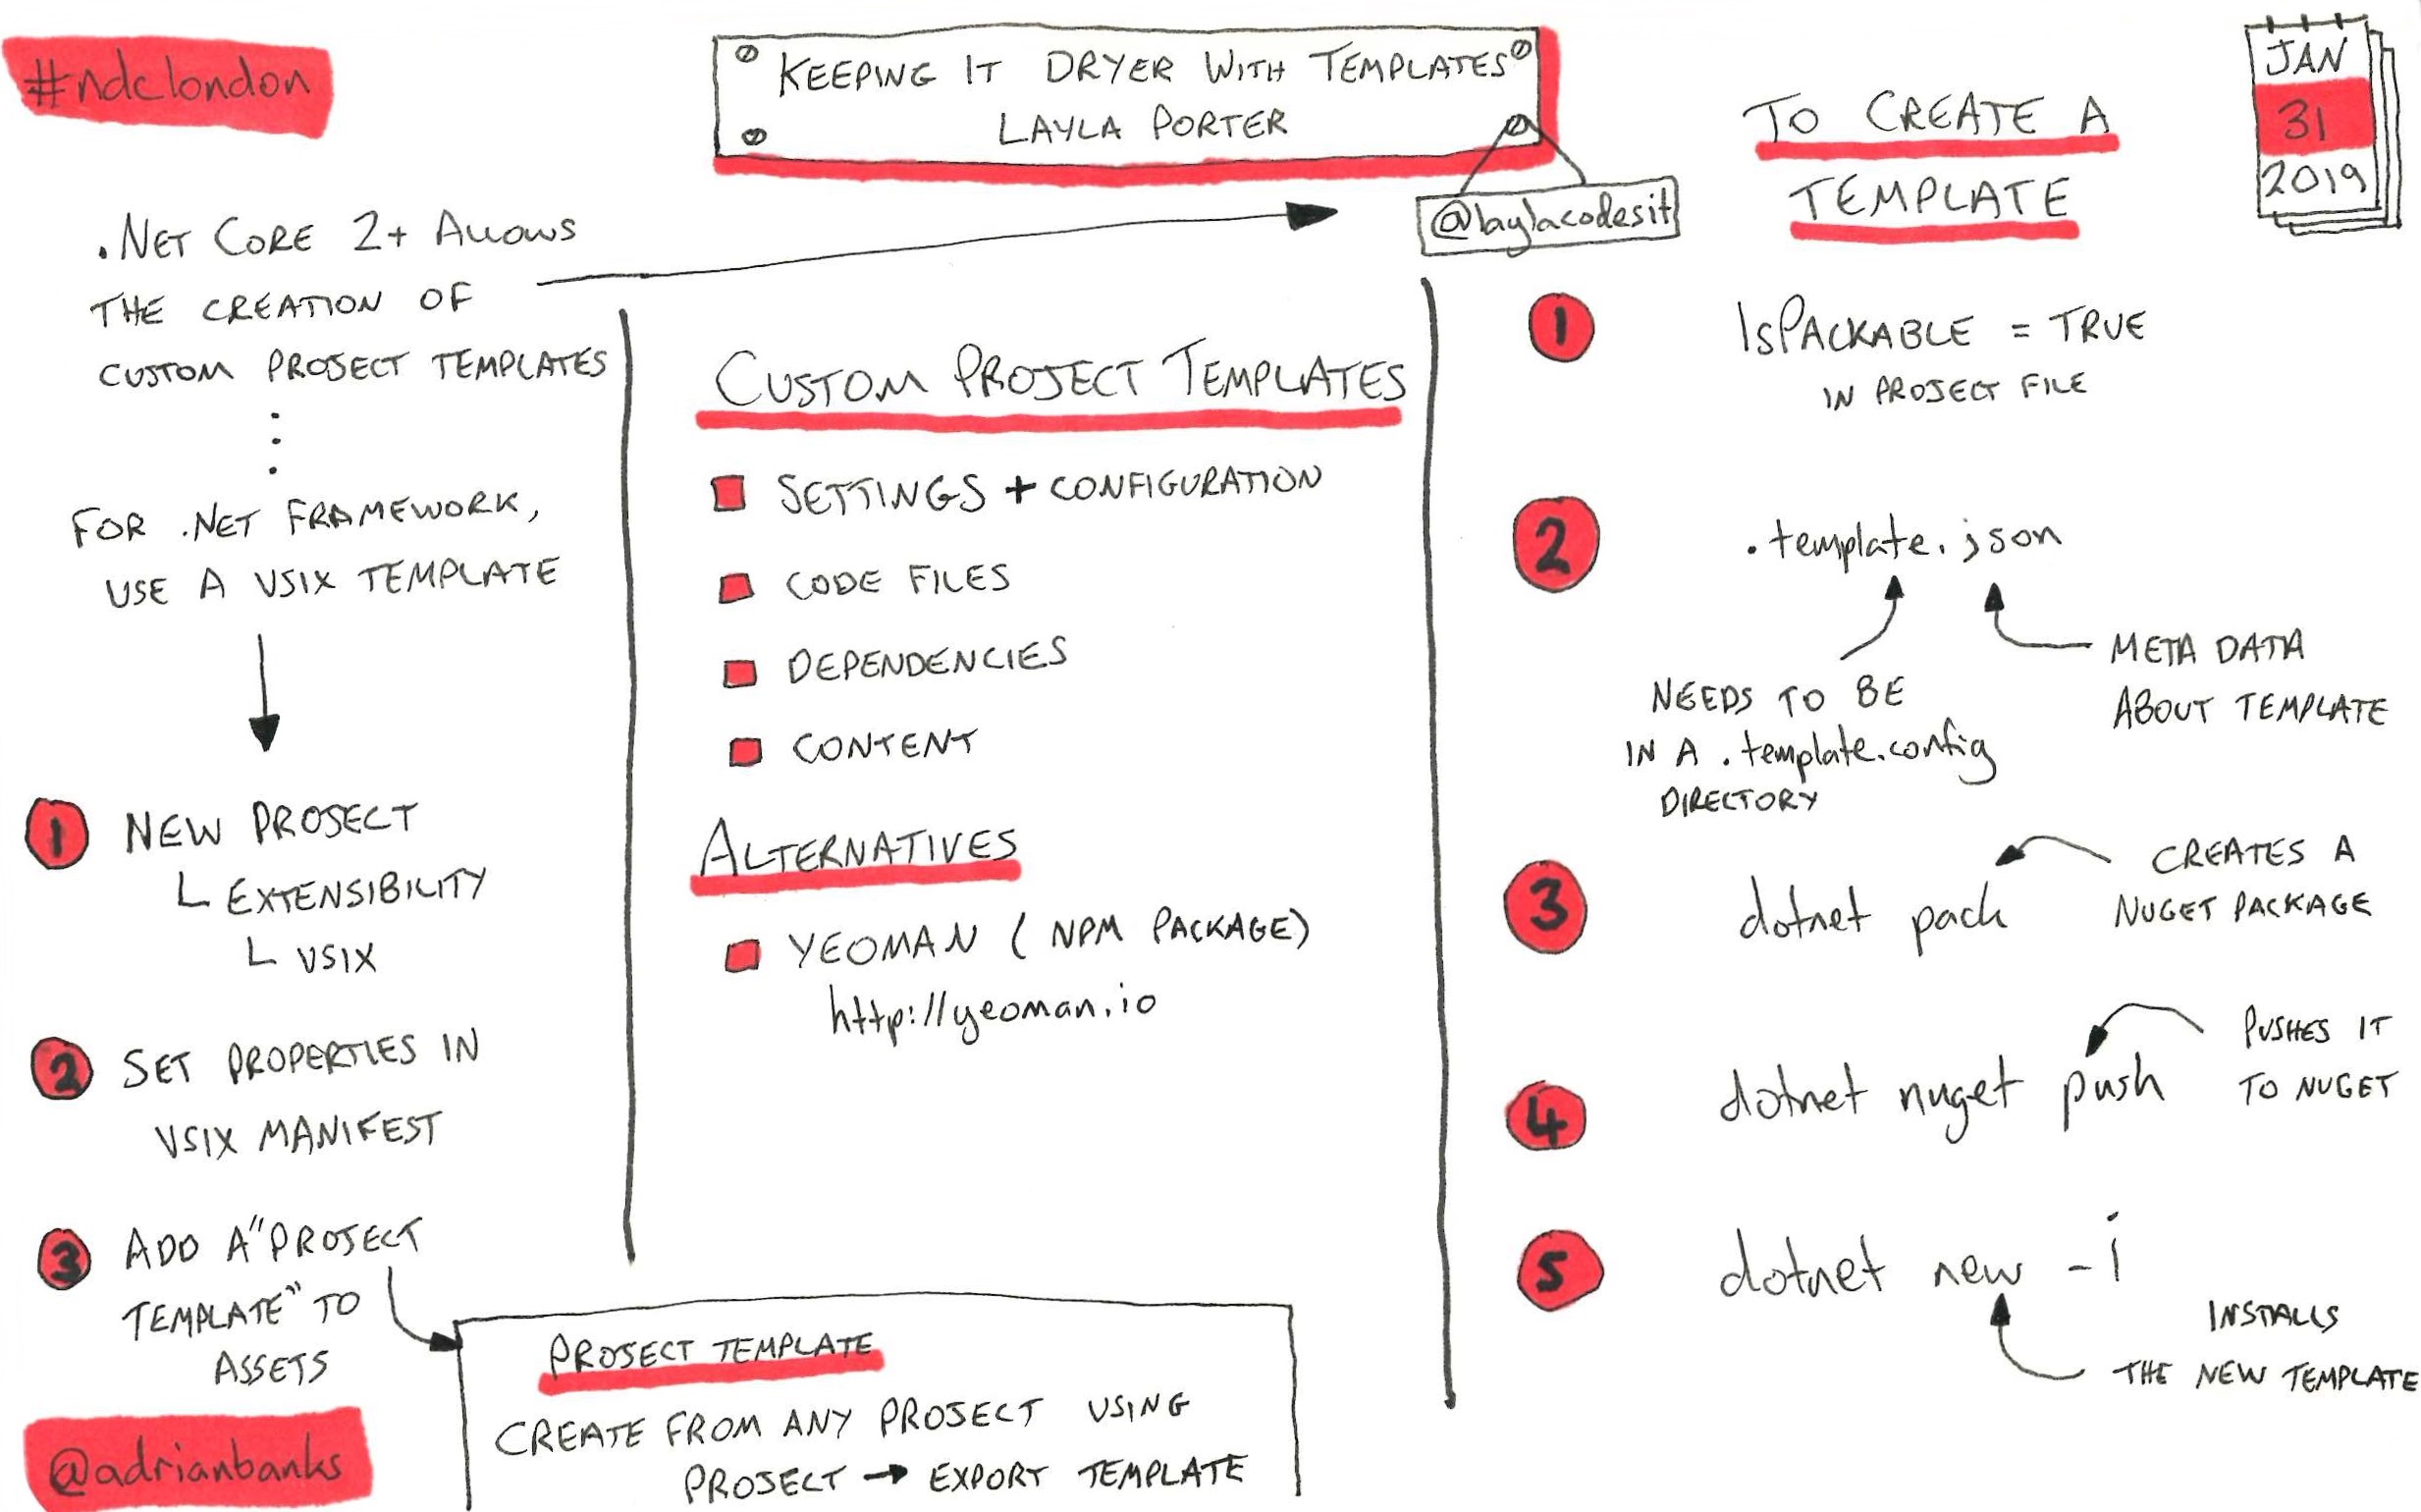 #ndclondon
KEEPING IT DRYER WITH TEMPLATES
LAYLA PORTER
@laylacodesit
JAN
31
2019
.NET CORE 2+ ALLOWS
THE CREATION OF
CUSTOM PROJECT TEMPLATES
FOR .NET FRAMEWORK,
USE A VSIX TEMPLATE
1 NEW PROJECT
EXTENSIBILITY
VSIX
2 SET PROPERTIES IN
VSIX MANIFEST
3 ADD A "PROJECT
TEMPLATE" TO
ASSETS
@adrianbanks
PROJECT TEMPLATE
CREATE FROM ANY PROJECT USING
PROJECT → EXPORT TEMPLATE
CUSTOM PROJECT TEMPLATES
SETTINGS + CONFIGURATION
CODE FILES
DEPENDENCIES
CONTENT
ALTERNATIVES
YEOMAN (NPM PACKAGE)
http://yeoman.io
TO CREATE A
TEMPLATE
1 ISPACKABLE = TRUE
IN PROJECT FILE
2 .template.json
META DATA
ABOUT TEMPLATE
NEEDS TO BE
IN A .template.config
DIRECTORY
3 dotnet pack
CREATES A
NUGET PACKAGE
4 dotnet nuget push
PUSHES IT
TO NUGET
5 dotnet new -i
INSTALLS
THE NEW TEMPLATE